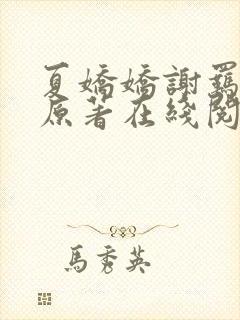 夏嬌嬌謝羈
原著在綫閱
馬秀英